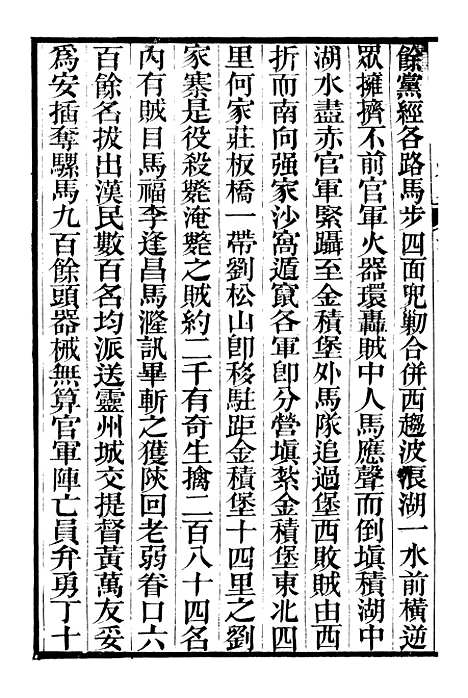 餘黨經各路馬步四面兜勦合併西趨波浪湖一水前橫逆
眾擁擠不前官軍火器環轟賊中人馬應聲而倒塡積湖中
湖水盡赤官軍緊躡至金積堡外馬隊追過堡西敗賊由西
折而南向强家沙窩遁竄各軍卽分營塡紮金積堡東北四
里何家莊板橋一帶劉松山卽移駐距金積堡十四里之劉
家寨是役殺斃淹斃之賊約二千有奇生擒二百八十四名
內有賊目馬福李逢昌馬漋訊畢斬之獲陝回老弱眷口六
百餘名拔出漢民數百名均派送靈州城交提督黃萬友妥
爲安插奪騾馬九百餘頭器械無算官軍陣亡員弁勇丁十